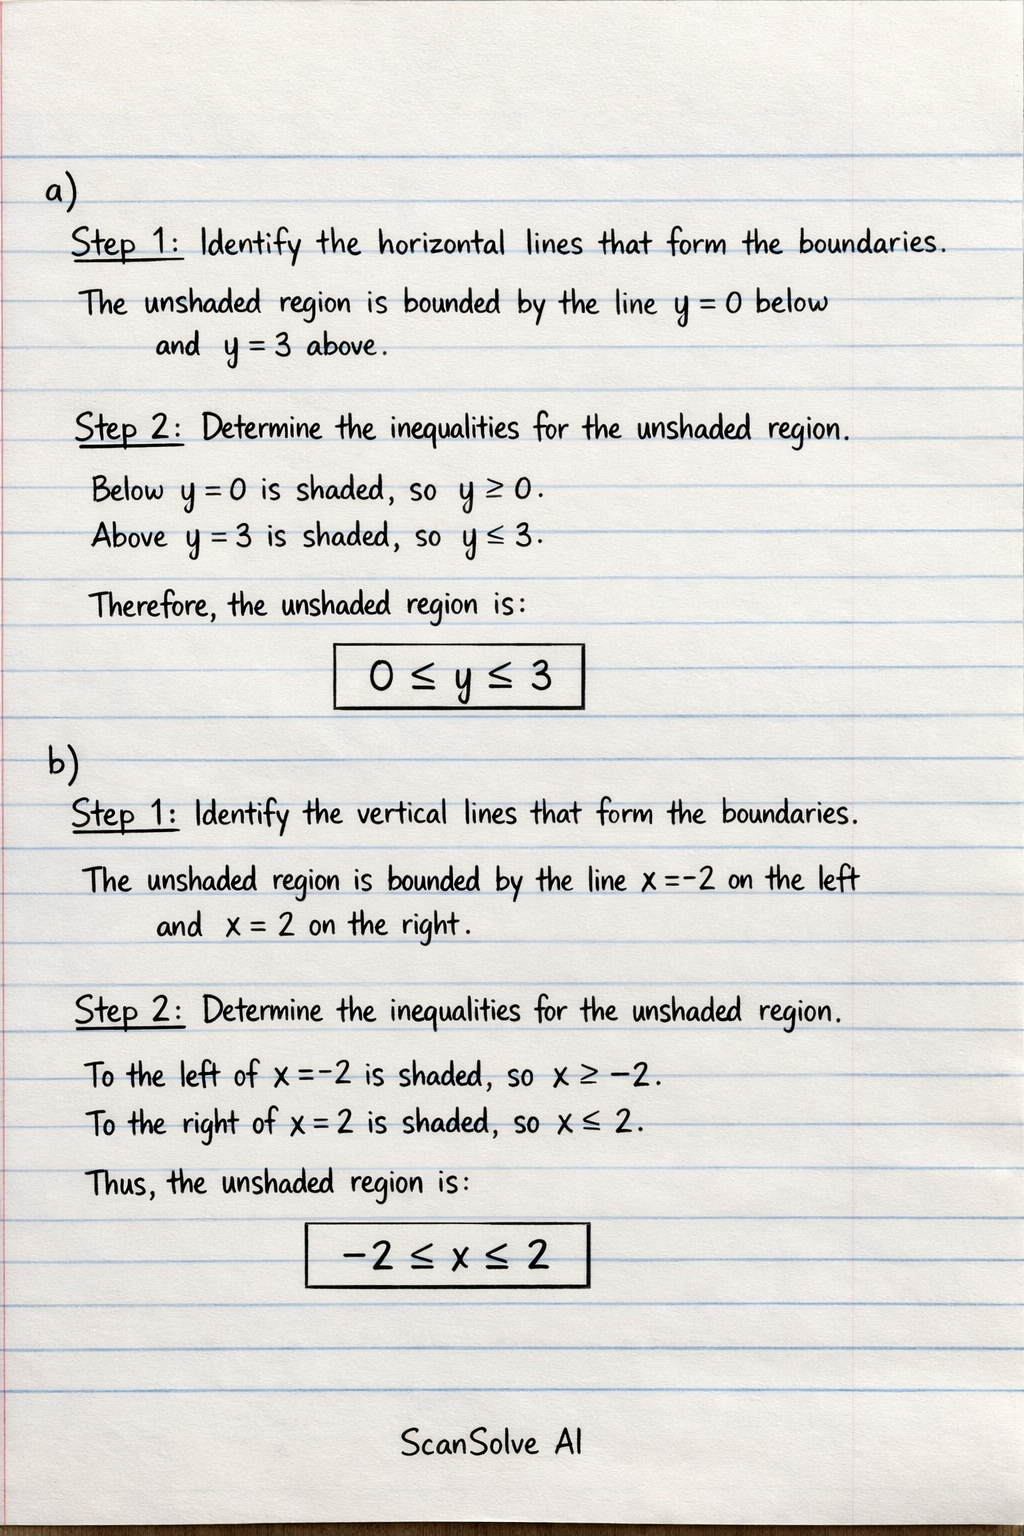 a)
Step 1: Identify the horizontal lines that form the boundaries.
The unshaded region is bounded by the line y = 0 below
and y = 3 above.
Step 2: Determine the inequalities for the unshaded region.
Below y = 0 is shaded, so y ≥ 0.
Above y = 3 is shaded, so y ≤ 3.
Therefore, the unshaded region is:
0 ≤ y ≤ 3
b)
Step 1: Identify the vertical lines that form the boundaries.
The unshaded region is bounded by the line x = -2 on the left
and x = 2 on the right.
Step 2: Determine the inequalities for the unshaded region.
To the left of x = -2 is shaded, so x ≥ -2.
To the right of x = 2 is shaded, so x ≤ 2.
Thus, the unshaded region is:
-2 ≤ x ≤ 2
ScanSolve AI